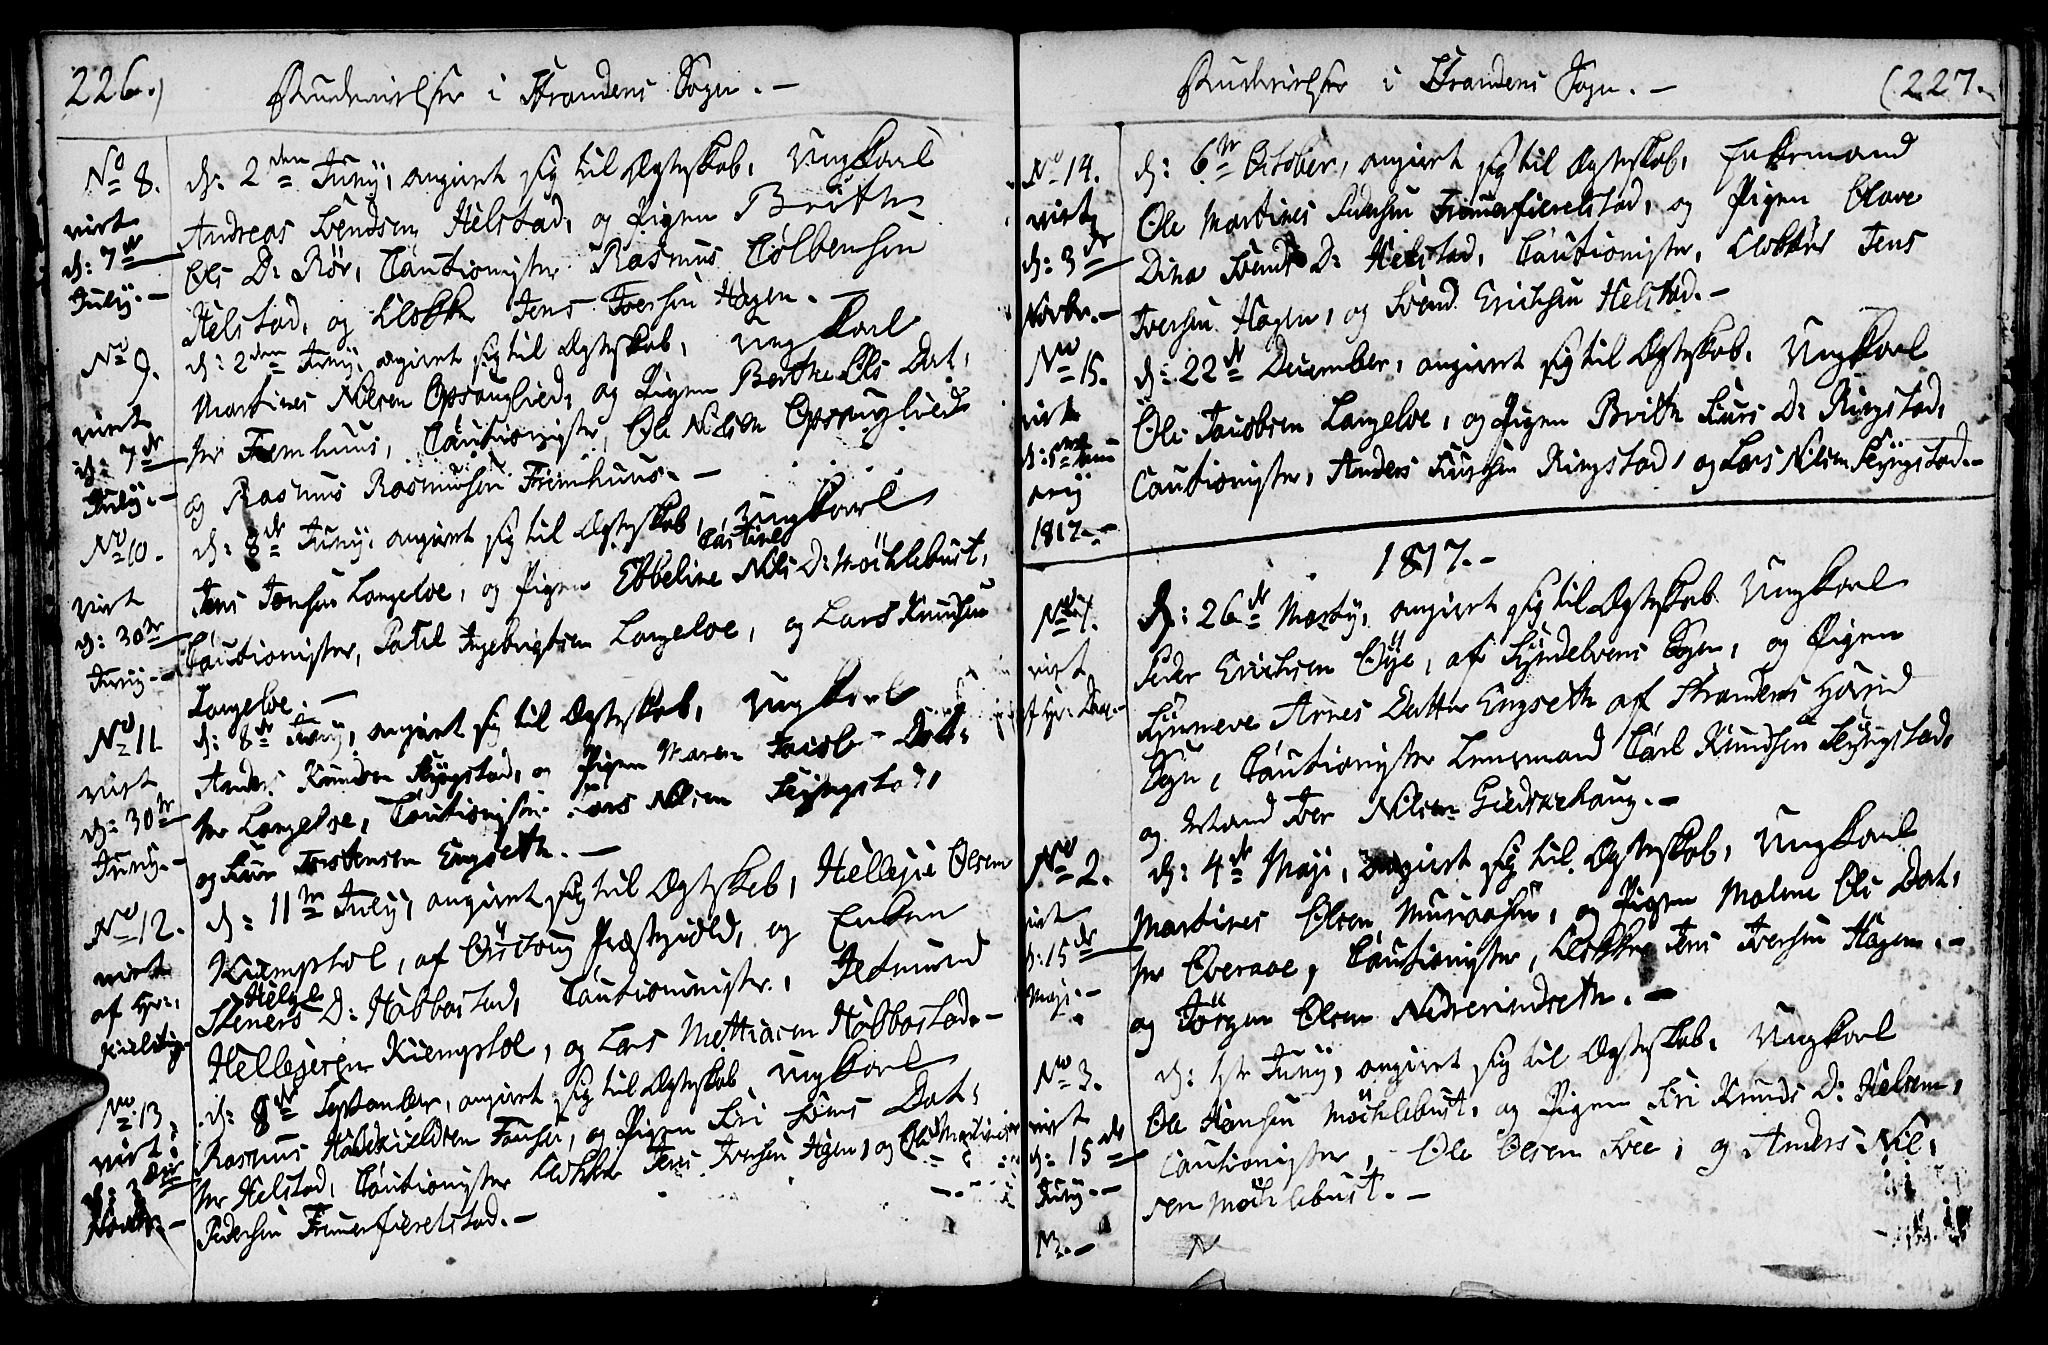 226.)
Brudevielser i Strandens Sogn. -
No 8.
viet
d: 7de
July. -
d: 2den Juny, angivet sig til Ægteskab, Ungkarl
Andreas Svendsen Helstad, og Pigen Brithe
Ols D: Rør, Cautionister Rasmus Colbensen
Helstad, og Klokker Jens Iversen Hagen. -
No 9.
viet
d: 7de
July. -
d: 2den Juny, angivet sig til Ægteskab, Ungkarl
Martines Nilsen Opsanglied, og Pigen Berthe Ols Dat:
ter Fremhuus, Cautionister, Ole Nilsen Opsanglied
og Rasmus Rasmusen Fremhuus. -
No 10.
viet
d: 30te
Juny. -
d: 8de Juny, angivet sig til Ægteskab, Ungkarl
Jens Jensen Langeloe, og Pigen Ebbeline Nils D: Mørhlebust,
Cautionister, Potel Ingebrigtsen Langeloe, og Lars Knudsen
Langeloe. -
No 11.
viet
d: 30te
Juny. -
d: 8de Juny, angivet sig til Ægteskab, Ungkarl
Anders Knudsen Slyngstad, og Pigen Maren Jacobs Dat:
ter Langeloe, Cautionister Lars Nilsen Slyngstad,
og Siur Torstensen Engseth. -
No 12.
viet
af Hr:
d: 11te July, angivet sig til Ægteskab, Hellejie Olsen
Kiemphol, af Ørstoug Præstegield, og Enken
Helge
Steners D: Habbostad, Cautionister, Jetmund
Hellejesen Kiemphol, og Lars Mathiasen Habbostad. -
No 13.
viet
Novbr: -
d: 8de September, angivet sig til Ægteskab, Ungkarl
Rasmus Hansen, og Pigen Siri Dat:
ter Helstad, Cautionister Klokker Jens Iversen Hagen, og Ole Martines
Pedersen Fremerfierelstad. -
Brudevielser i Strandens Sogn. -
(227.
No 14.
viet
d: 3de
Novbr. -
d: 6te October, angivet sig til Ægteskab, Enkemand
Ole Martines Pedersen Fremerfierelstad, og Pigen Olave
Dina Svends D: Helstad, Cautionister, Klokker Jens
Iversen Hagen, og Svend Erichsen Helstad. -
No 15.
viet
1817. -
d: 22de December, angivet sig til Ægteskab, Ungkarl
Ole Jacobsen Langeloe, og Pigen Brith Siurs D: Ringstad,
Cautionister, Anders Siursen Ringstad, og Lars Nilsen Slyngstad. -
1817. -
No 1.
viet
d: 26de Marty, angivet sig til Ægteskab Ungkarl
Peder Erichsen Øye, af Syndelvens Sogn, og Pigen
Synneve Arnes Datter Engseth af Strandens Hoved
Sogn, Cautionister Lensmand Carl Knudsen Slyngstad,
og Mand Iver Nilsen Giedskehaug. -
No 2.
viet
d: 15de
Maji. -
d: 4de Maji, angivet sig til Ægteskab, Ungkarl
Martines Olsen Murisaasen, og Pigen Malene Ols Dat:
ter Overaae, Cautionister, Klokker Jens Iversen Hagen. -
og Jørgen Olsen Nedreindseth. -
No 3.
viet
d: 15de
Juny. -
d: 1ste Juny, angivet sig til Ægteskab, Ungkarl
Ole Hansen Møchlebust, og Pigen Siri Knuds D: Helsem,
Cautionister, Ole Olsen Svee, og Anders Nil:
sen Møchlebust. -
N